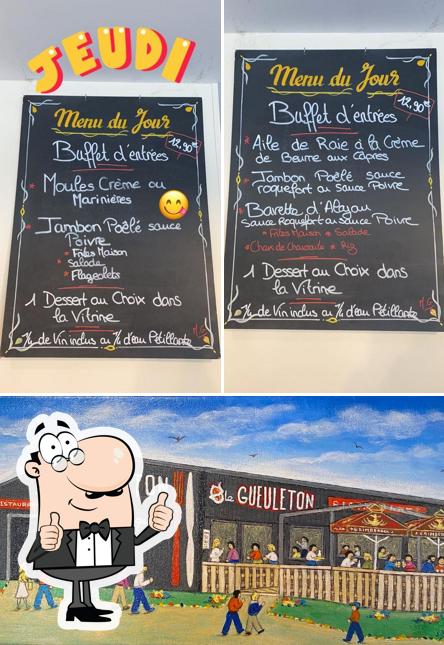 JEUDI
Menu du Jour
12,90€
Buffet d'entrées
* Moules Crème ou
Marinières
* Jambon Poêlé sauce
Poivre
* Frites Maison
* Salade
* Flageolets
1 Dessert au Choix dans
la Vitrine
1/4 de Vin inclus ou 1/2 d'eau Pétillante
Menu du Jour
12,90€
Buffet d'entrées
* Aile de Raie à la Crème
de Beurre aux câpres
* Jambon Poêlé sauce
roquefort ou sauce Poivre
* Bavette d'Aloyau
sauce Roquefort ou sauce Poivre
* Frites Maison * Salade
* Riz
1 Dessert au Choix dans
la Vitrine
1/4 de Vin inclus ou 1/2 d'eau Pétillante
ON
le GUEULETON